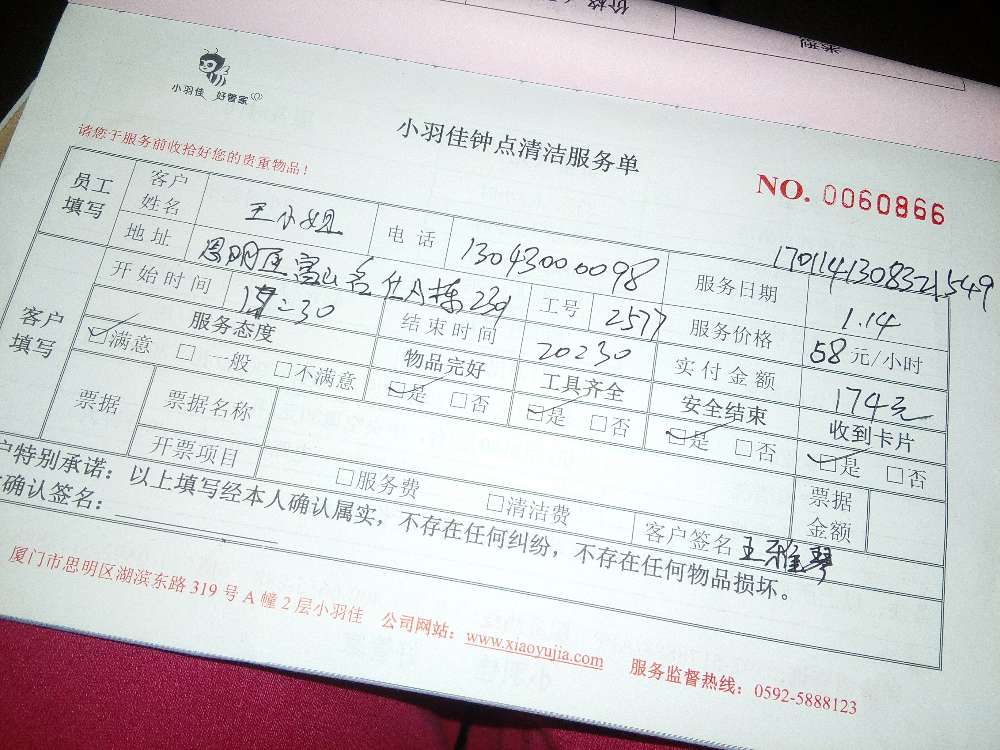 价格
类型
小羽佳 好管家
小羽佳钟点清洁服务单
请您于服务前收拾好您的贵重物品！
NO. 0060866
1701141308321549
员工填写 客户姓名 王小姐 电话 13043000098 服务日期 1.14
地址 思明区富山名仕A栋23d 工号 2577 服务价格 58元/小时
客户填写 开始时间 17:30 结束时间 20:30 实付金额 174元
服务态度 物品完好 工具齐全 安全结束 收到卡片
☑满意 □一般 □不满意 ☑是 □否 ☑是 □否 ☑是 □否 ☑是 □否
票据 票据名称 票据金额
开票项目 □服务费 □清洁费 客户签名 王雅琴
户特别承诺：以上填写经本人确认属实，不存在任何纠纷，不存在任何物品损坏。
确认签名：
厦门市思明区湖滨东路 319 号 A 幢 2 层小羽佳 公司网站：www.xiaoyujia.com 服务监督热线：0592-5888123